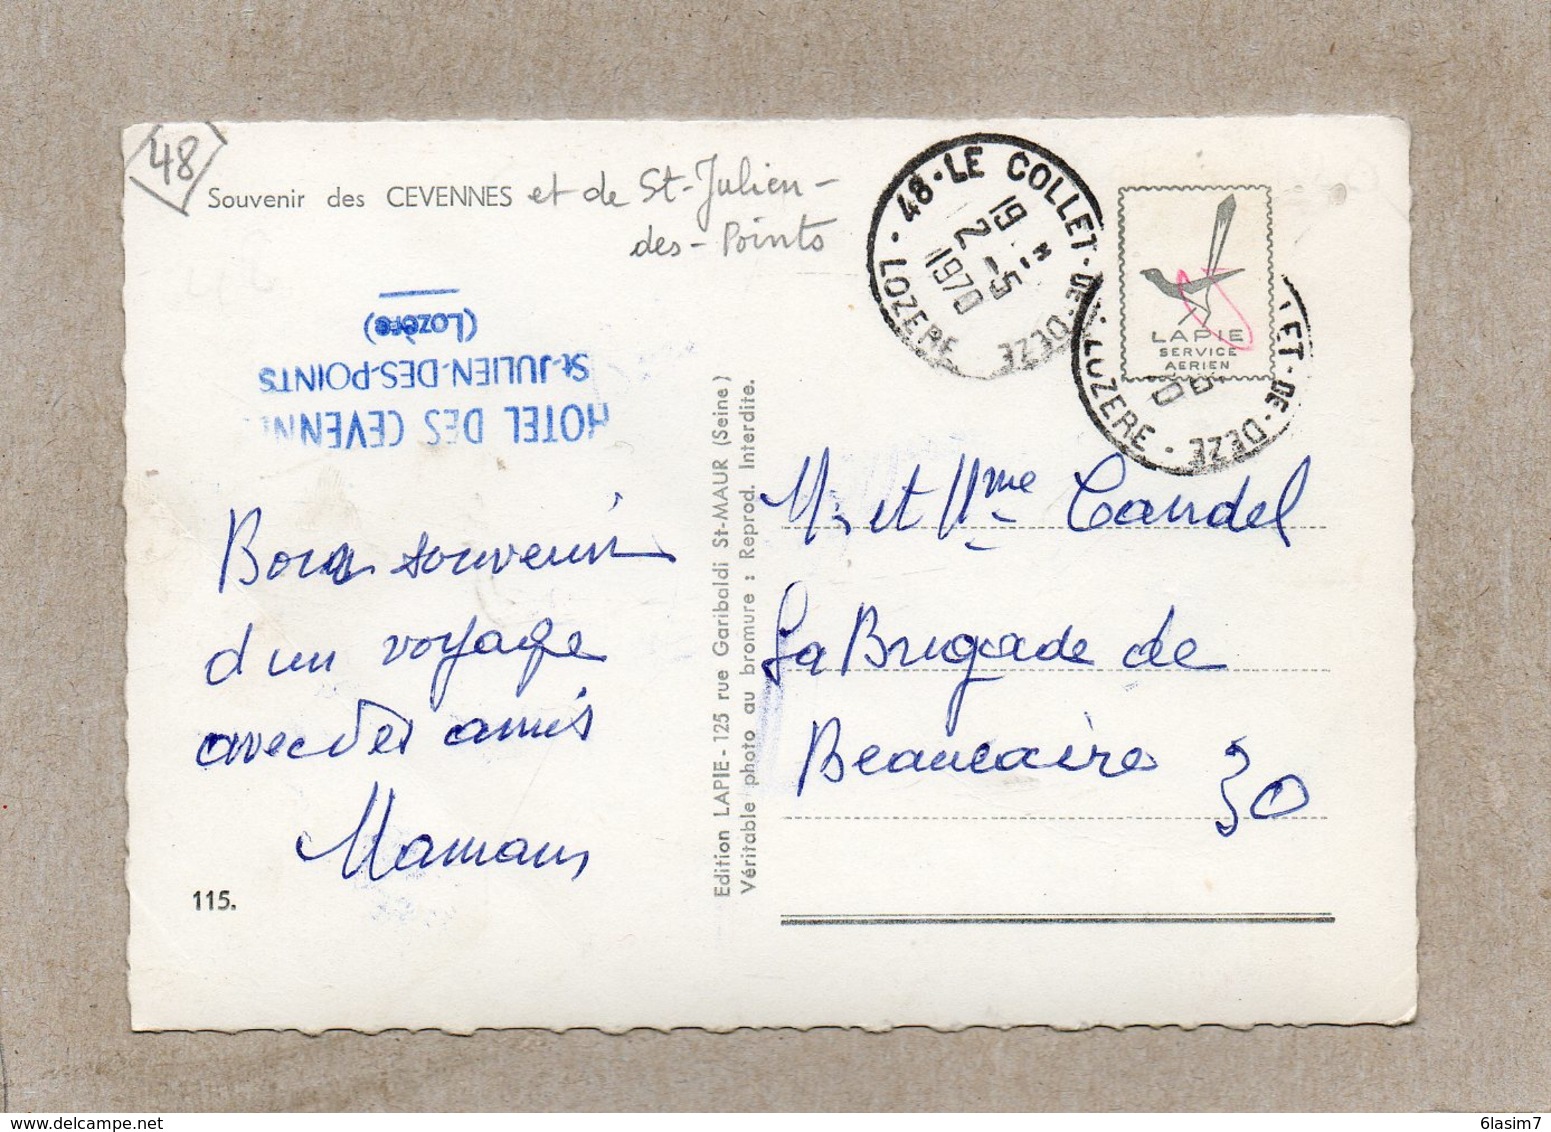 48
Souvenir des CEVENNES et de St-Julien-
des-Points
HOTEL DES CEVENN
St-JULIEN-DES-POINTS
(Lozère)
Bons souvenirs
d'un voyage
avec des amis
Maman
115.
Edition LAPIE - 125 rue Garibaldi St-MAUR (Seine)
Véritable photo au bromure : Reprod. Interdite.
48-LE COLLET-DE-DEZE
LOZERE
19 H
2-5
1970
LET-DE-DEZE
LOZERE
LAPIE
SERVICE
AERIEN
Mr et Mme Candel
La Brigade de
Beaucaire 30
6lasim7